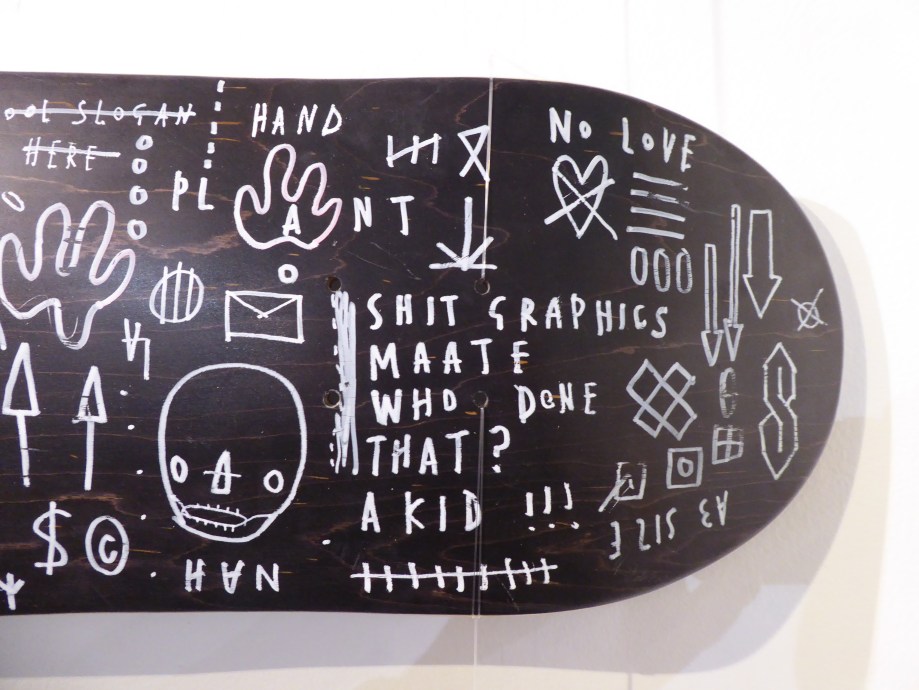 SLOGAN
HERE
HAND
PL A NT
NO LOVE
SHIT GRAPHICS
MAATE
WHO DONE
THAT?
A KID !!!
A3 SIZE
$ ©
NAH